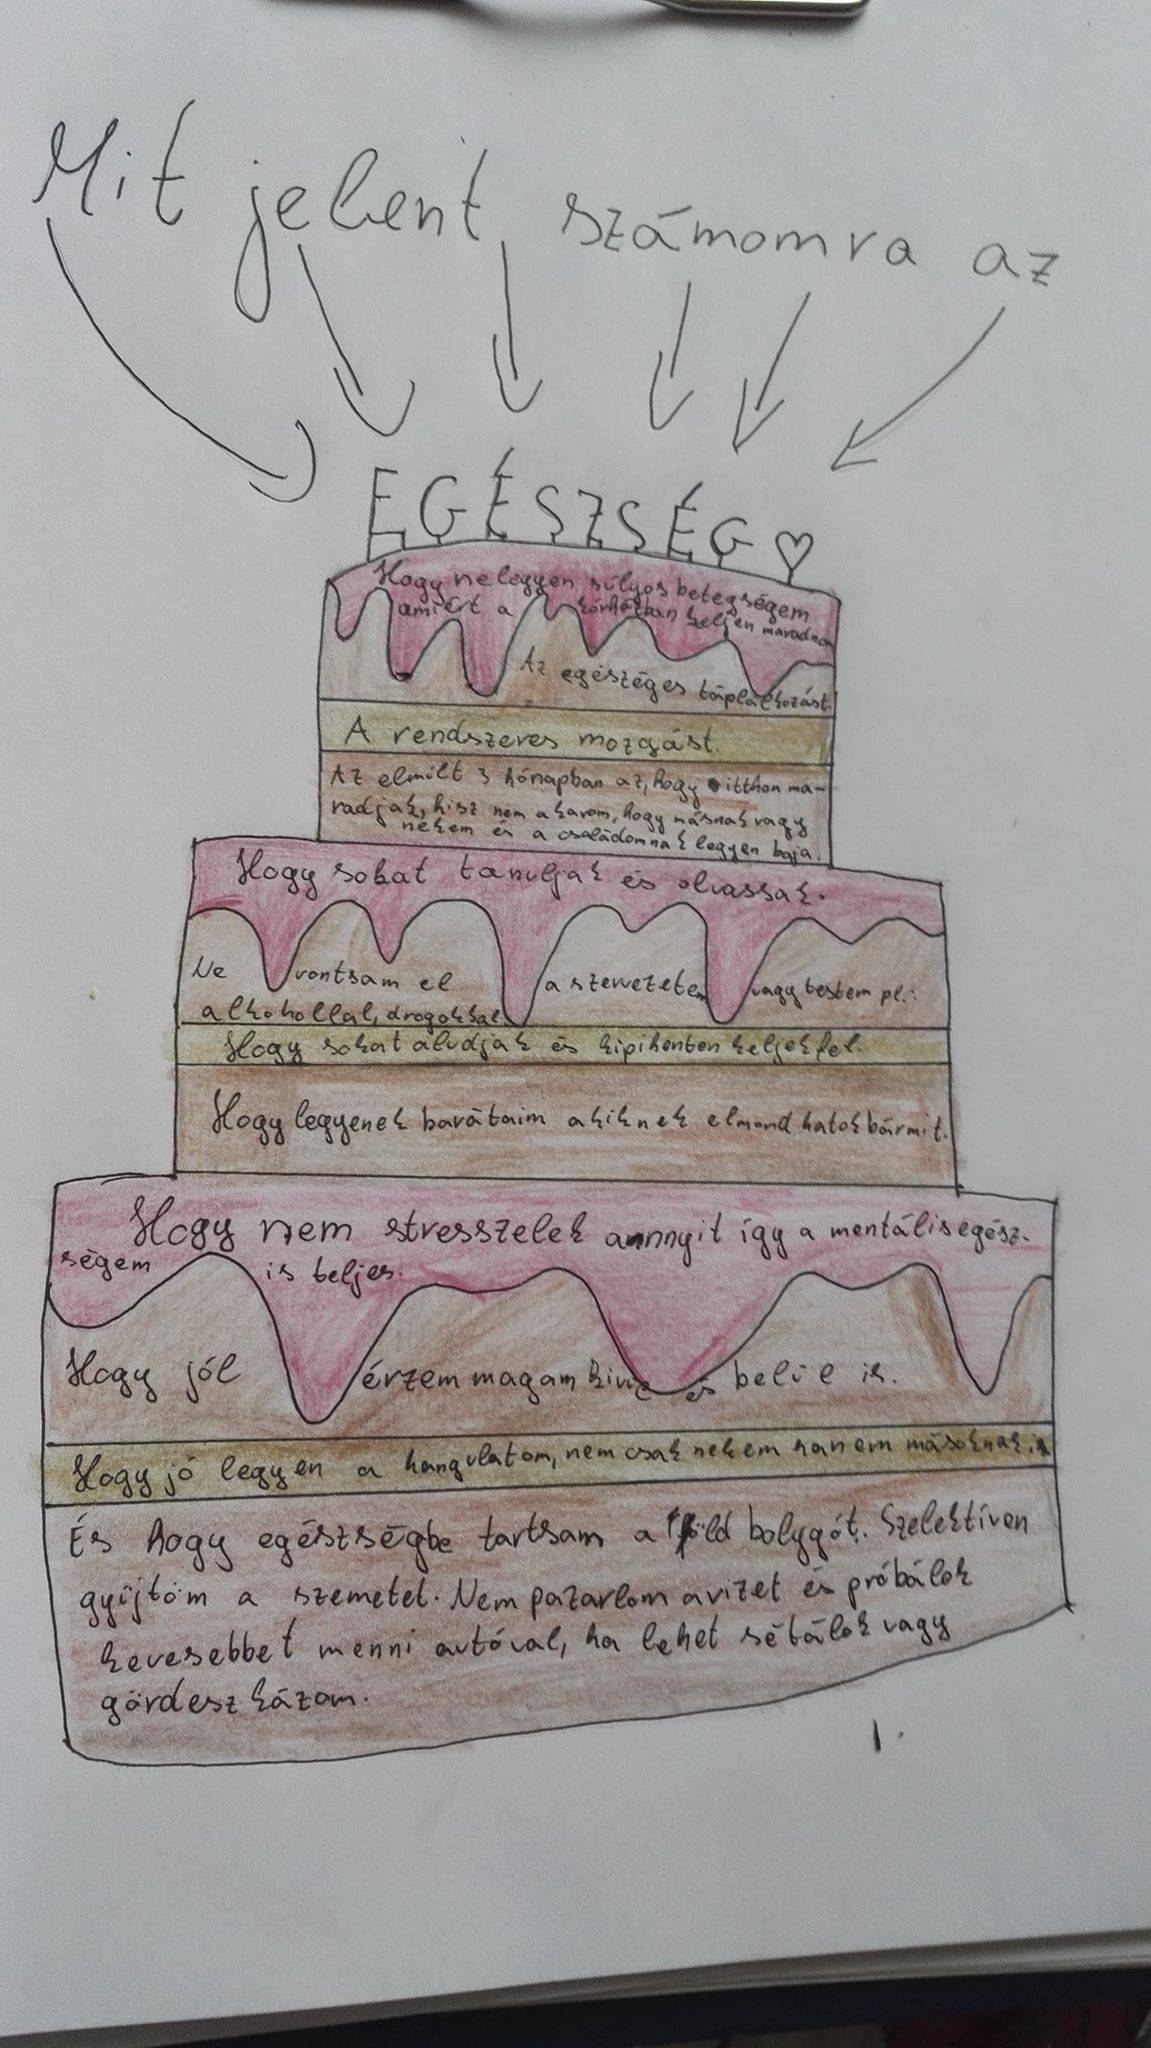 Mit jelent számomra az
EGÉSZSÉG ♡
Hogy ne legyen súlyos betegségem
amiért a kórházban keljen maradnom
Az egészéges táplálkozást.
A rendszeres mozgást.
Az elmúlt 3 hónapban az, hogy itthon ma-
radjak, hisz nem akarom, hogy másnak vagy
nekem és a családomnak legyen baja.
Hogy sokat tanuljak és olvassak.
Ne rontsam el a szervezetem vagy testem pl.:
alkohollal, drogokkal.
Hogy sokat aludjak és kipihenten keljek fel.
Hogy legyenek barátaim akiknek elmondhatok bármit.
Hogy nem stresszelek annnyit így a mentális egész-
ségem is teljes.
Hogy jól érzem magam kivül és belül is.
Hogy jó legyen a hangulatom, nem csak nekem hanem másoknak is
És hogy egészségbe tartsam a föld bolygót. Szelektíven
gyűjtöm a szemetet. Nem pazarlom a vizet és próbálok
kevesebbet menni autóval, ha lehet sétálok vagy
gördeszkázom.
1.